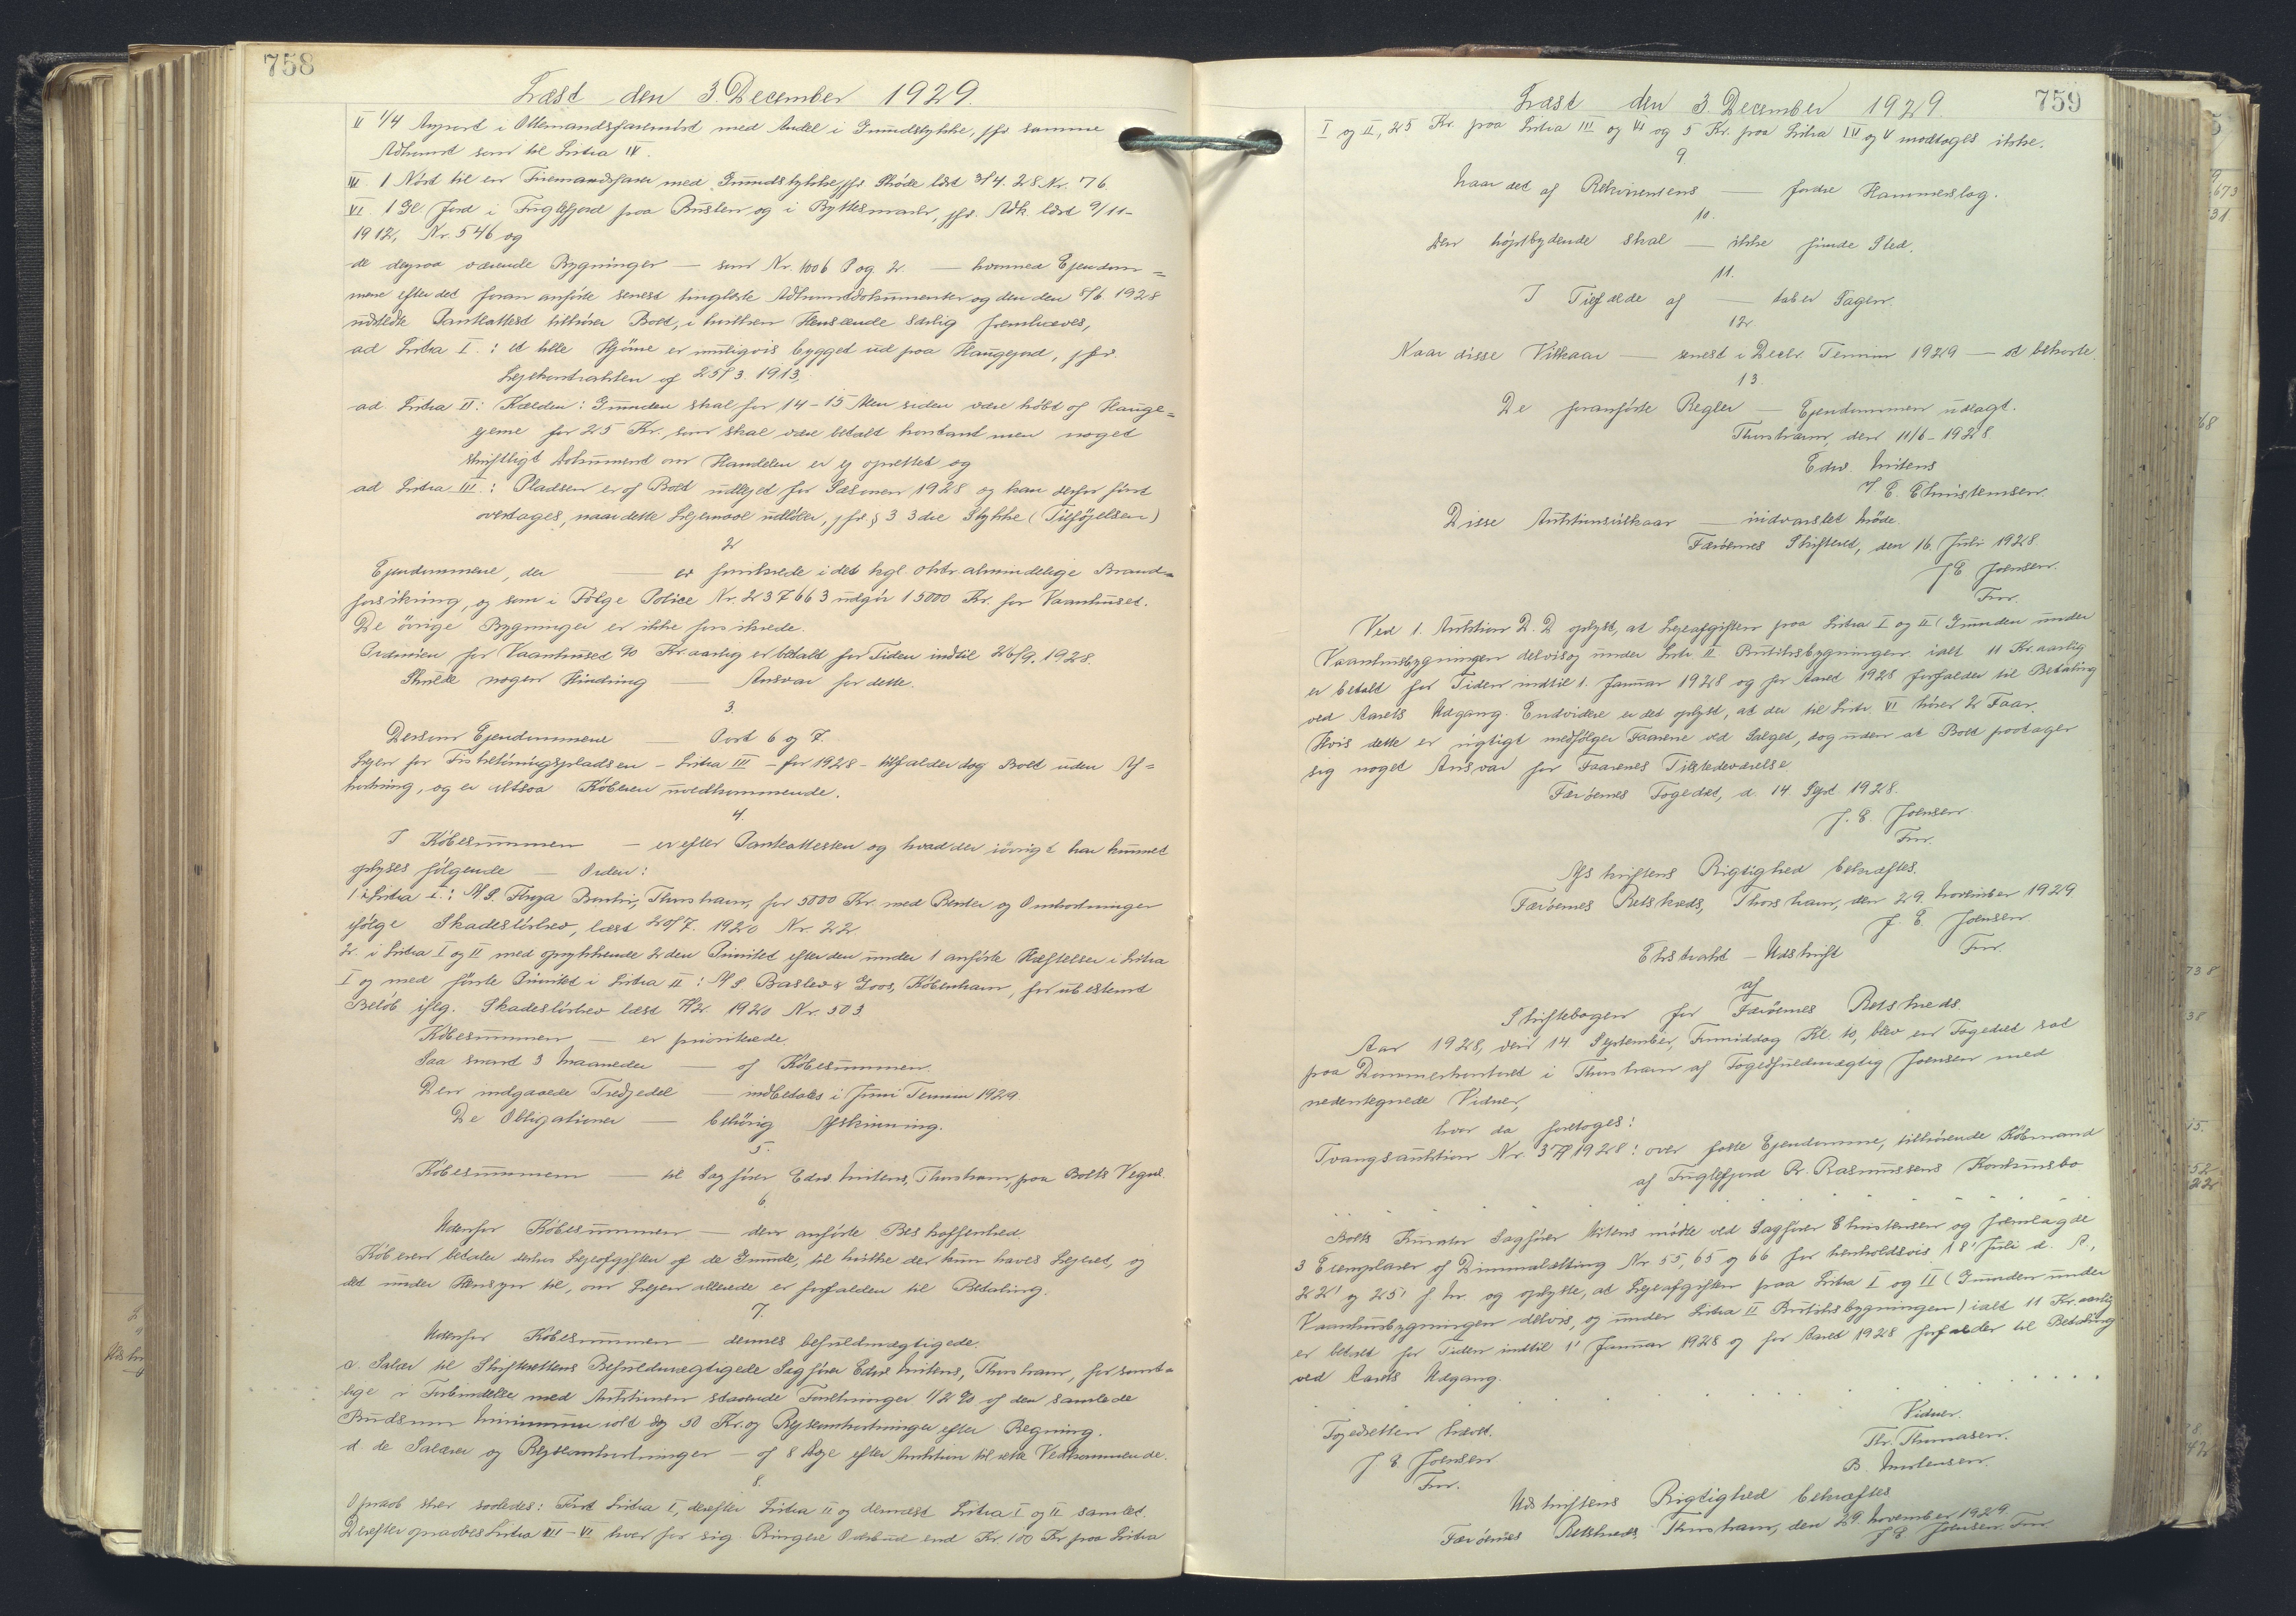 758
Læst den 3. December 1929.
II 1/4 Anpart i Ottemandsfarsnøst med Andel i Grundstykke, jfr samme
Adkomst som til Litra IV.
III. 1 Nøst til en Firemandsfarer med Grundstykke, jfr. Skøde læst 3/4. 28 Nr. 76.
VI 1 Gl. Jord i Fuglefjord paa Bústen og i Byttesmark, jfr. Adk. læst 9/11-
1912, Nr. 546 og
de derpaa værende Bygninger — som Nr. 1006 O og 2. — hvormed Ejendom=
mene efter det foran anførte senest tinglæste Adkomstdokumenter og den den 5/6 1928
udstedte Pantattest tilhører Boet, i hvilken Henseende særlig fremhæves,
ad Litra I.: et lille Hjørne er muligvis bygget ud paa Haugejord, jfr.
Lejekontrakten af 25/3. 1913,
ad Litra II: Kælder: Grunden skal for 14-15 Aar siden være købt af Hauge=
ejerne for 25 Kr. som skal være betalt kontant men noget
skriftligt Dokument om Handelen er ej oprettet og
ad Litra III.: Pladsen er af Boet udlejet for Sæsonen 1928 og kan derfor først
overtages, naar dette Lejemaal udløber, jfr. § 3 3die Stykke (Tilføjelsen)
2
Ejendommene, der — er forsikrede i det kgl. oktr. almindelige Brand=
forsikring, og som i Følge Police Nr. 237663 udgør 15000 Kr. for Vaanhuset.
De øvrige Bygninger er ikke forsikrede.
Præmien for Vaanhuset 90 Kr. aarlig er betalt for Tiden indtil 26/9. 1928.
Skulde nogen Hindring — Ansvar for dette.
3.
Dersom Ejendommene — Post 6 og 7.
Lejen for Fisketørringspladsen - Litra III - for 1928 - tilfalder dog Boet uden Af=
kortning, og er altsaa Køberen uvedkommende.
4.
I Købesummen — er efter Pantattesten og hvad der iøvrigt har kunnet
oplyses følgende — Orden:
1. i Litra I.: A/S. Thorshavn, for 5000 Kr. med Renter og Omkostninger
ifølge Skadesløsbrev, læst 20/7. 1920 Nr. 22.
2. i Litra I og II med oprykkende 2den Prioritet efter den under 1 anførte Hæftelse i Litra
I og med første Prioritet i Litra II: A/S Basler & Goos, København, for ubestemt
Beløb iflg. Skadesløsbrev læst 7/12. 1920 Nr. 503
Købesummen — er prioriterede.
Saa snart 3 Maaneder — af Købesummen.
Den indgaaede Tredjedel — indbetales i Juni Termin 1929.
De Obligationer — behørig Afskrivning.
5.
Købesummen — til Sagfører Edw. Mitens, Thorshavn, paa Boets Vegne.
6
Udenfor Købesummen — den anførte Beskaffenhed.
Køberen betaler derhos Lejeafgiften af de Grunde, til hvilke der kun haves Lejeret, og
det uden Hensyn til, om Lejen allerede er forfalden til Betaling.
7.
Udenfor Købesummen — dennes befuldmægtigede.
c. Salær til Skifterettens Befuldmægtigede Sagfører Edw. Mitens, Thorshavn, for samt=
lige i Forbindelse med Auktionen staaende Forretninger 1/2 % af den samlede
Budsum Minimum solt dog 50 Kr. og Rejseomkostninger efter Regning.
d. de Salærer og Rejseomkostninger — af 8 dage efter Auktion til rette Vedkommende.
8.
Opraab sker saaledes: Først Litra I, derefter Litra II og dernæst Litra I og II samlet.
Derefter opraabes Litra III - VI hver for sig. Ringere Overbud end Kr. 100 Kr paa Litra
759
Læst den 3 December 1929.
I og II, 25 Kr. paa Litra III og VI og 5 Kr. paa Litra IV og V modtages ikke.
9
Naar det af Rekvirentens — fordre Hammerslag.
10.
Den højstbydende skal — ikke finde Sted.
11.
I Tilfælde af — taber Sagen.
12
Naar disse Vilkaar — senest i Decbr. Termin 1929 — at bekoste.
13.
De foranførte Regler — Ejendommen udlagt.
Thorshavn, den 11/6 - 1928
Edw. Mitens
v/ E. Christensen.
Disse Auktionsvilkaar — indvarslet Møde.
Færøernes Skifteret, den 16. Juli 1928.
J E Joensen.
Fm.
Ved 1. Auktion D. D oplyst, at Lejeafgiften paa Litra I og II (Grunden under
Vaanhusbygningen delvis og under Litr II Butiksbygningen ialt 11 Kr. aarlig
er betalt for Tiden indtil 1. Januar 1928 og for Aaret 1928 forfalder til Betaling
ved Aarets Udgang. Endvidere er det oplyst, at der til Litr. VI hører 2 Faar.
Hvis dette er rigtigt medfølger Faarene ved Salget, dog uden at Boet paatager
sig noget Ansvar for Faarenes Tilstedeværelse.
Færøernes Fogedret, d. 14. Sept 1928.
J. E. Joensen
Fm.
Afskriftens Rigtighed bekræftes.
Færøernes Retskreds, Thorshavn, den 29. November 1929
J. E. Joensen.
Fm.
Ekstrakt - Udskrift
af
Skiftebogen for Færøernes Retskreds.
Aar 1928, den 14. September, Formiddag Kl. 10, blev en Fogedret sat
paa Dommerkontoret i Thorshavn af Fogedfuldmægtig Joensen med
nedentegnede Vidner,
hvor da foretoges:
Tvangsauktion Nr. 37/1928: over faste Ejendomme, tilhørende Købmand
af Fuglefjord Pr. Rasmussens Konkursbo
Boets Kurator Sagfører Mitens mødte ved Sagfører Christensen og fremlagde
3 Exemplarer af Dimmalætting Nr. 55, 65 og 66 for henholdsvis 18' Juli d. A.,
22' og 25' f. M. og oplyste, at Lejeafgiften paa Litra I og II (Grunden under
Vaanhusbygningen delvis, og under Litra II Butiksbygningen) ialt 11 Kr. aarlig
er betalt for Tiden indtil 1' Januar 1928 og for Aaret 1928 forfalder til Betaling
ved Aarets Udgang.
Fogedretten hævet.
J. E. Joensen
Fm.
Vidner.
Th. Thomasen.
B. Mortensen.
Udskriftens Rigtighed bekræftes
Færøernes Retskreds, Thorshavn, den 29. November 1929.
J E Joensen. Fm